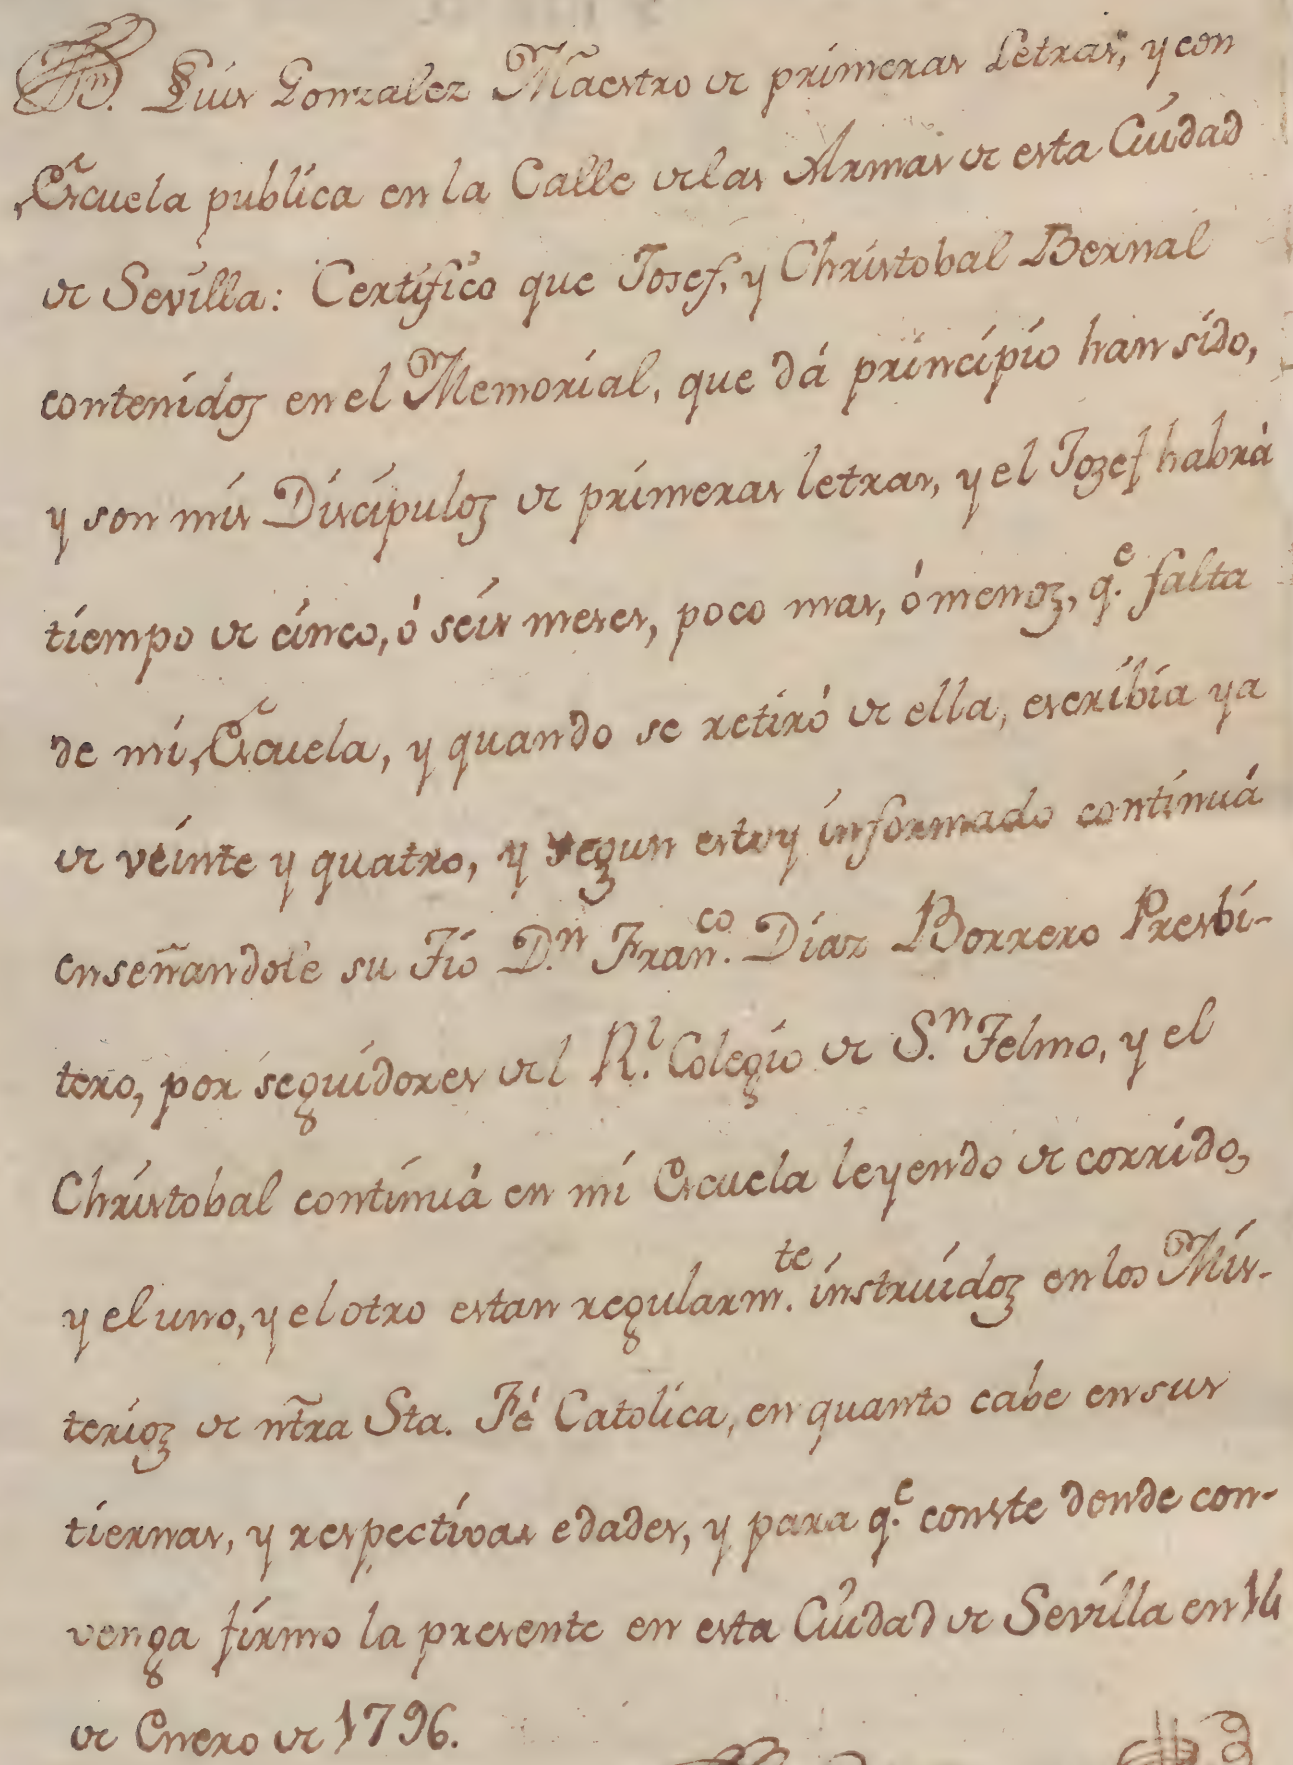 Dn. Luis Gonzalez Mäestro de primeras Letras, y con
Escuela publica en la Calle delas Armas de esta Ciudad
de Sevilla: Certifico que Josef, y Christobal Bernal
contenidos en el Memorial, que dá principio han sido,
y son mis Discipulos de primeras letras, y el Jozef habrá
tiempo de cinco, ó seis meses, poco mas, ó menos, q.e falta
de mi Escuela, y quando se retiró de ella, escribia ya
de veinte y quatro, y segun estoy informado continuá
enseñandole su Tio D.n Fran.co Diaz Borrero Presbi-
tero, por seguidores del R.l Colegio de S.n Telmo, y el
Christobal continuá en mi Escuela leyendo de corrido,
y el uno, y el otro estan regularm.te instruidos en los Mis-
terios de ñtra Sta. Fé Catolica, en quanto cabe en sus
tiernas, y respectivas edades, y para q.e conste donde con-
venga firmo la presente en esta Ciudad de Sevilla en 14
de Enero de 1796.